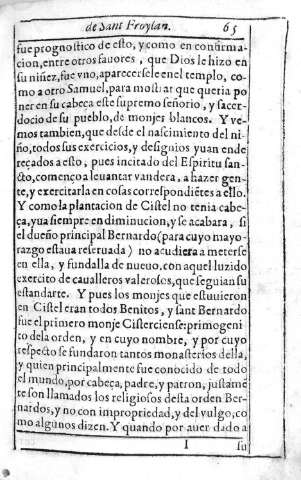 de Sant Froylan. 65
fue prognostico de esto, y como en confirma-
cion, entre otros fauores, que Dios le hizo en
su niñez, fue vno, aparecersele en el templo, co-
mo a otro Samuel, para mostrar que queria po
ner en su cabeça este supremo señorio, y sacer-
docio de su pueblo, de monjes blancos. Y ve-
mos tambien, que desde el nascimiento del ni-
ño, todos sus exercicios, y designios yuan ende
reçados a esto, pues incitado del Espiritu san-
cto, començo a leuantar vandera, a hazer gen-
te, y exercitarla en cosas correspondiētes a ello.
Y como la plantacion de Cistel no tenia cabe-
ça, yua siempre en diminucion, y se acabara, si
el dueño principal Bernardo (para cuyo mayo-
razgo estaua reseruada) no acudiera a meterse
en ella, y fundalla de nueuo, con aquel luzido
exercito de caualleros valerosos, que seguian su
estandarte. Y pues los monjes que estuuieron
en Cistel eran todos Benitos, y sant Bernardo
fue el primero monje Cisterciense: primogeni
to dela orden, y en cuyo nombre, y por cuyo
respecto se fundaron tantos monasterios della,
y quien principalmente fue conocido de todo
el mundo, por cabeça, padre, y patron, justamē
te son llamados los religiosos desta orden Ber-
nardos, y no con impropriedad, y del vulgo, co
mo algunos dizen. Y quando por auer dado a
I su